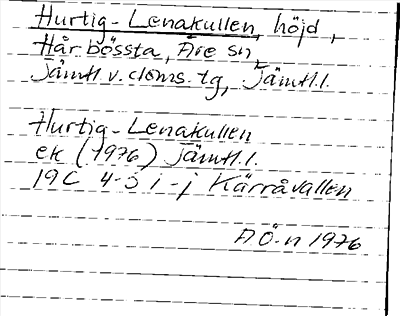 Hurtig-Lenakullen, höjd,
Hårbössta, Åre sn,
Jämtl.v.doms.tg, Jämtl.l.
Hurtig-Lenakullen
ek (1976) Jämtl.l.
19C 4-5 i-j Kärråvallen
AÖ-n 1976